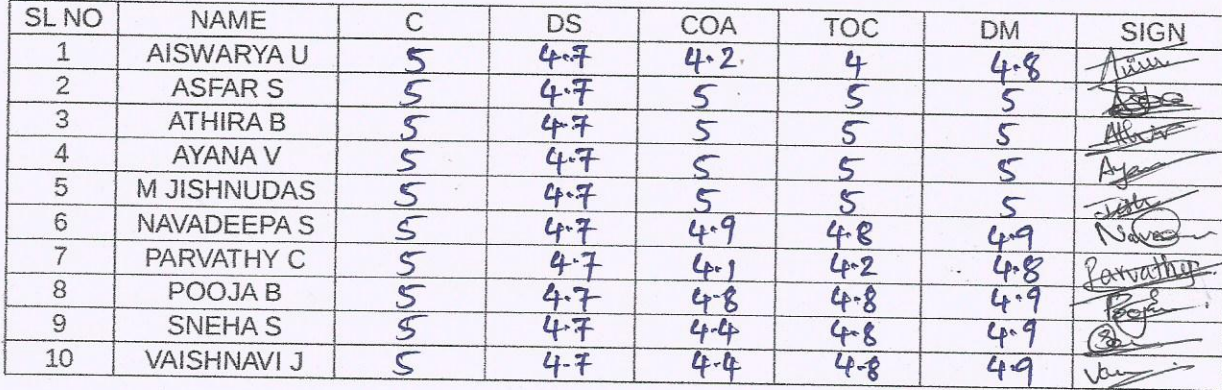 SL NO NAME C DS COA TOC DM SIGN
1 AISWARYA U 5 4.7 4.2 4 4.8
2 ASFAR S 5 4.7 5 5 5
3 ATHIRA B 5 4.7 5 5 5 Athira
4 AYANA V 5 4.7 5 5 5 Ayana
5 M JISHNUDAS 5 4.7 5 5 5
6 NAVADEEPA S 5 4.7 4.9 4.8 4.9
7 PARVATHY C 5 4.7 4.1 4.2 4.8 Parvathy
8 POOJA B 5 4.7 4.8 4.8 4.9 Pooja
9 SNEHA S 5 4.7 4.4 4.8 4.9
10 VAISHNAVI J 5 4.7 4.4 4.8 4.9